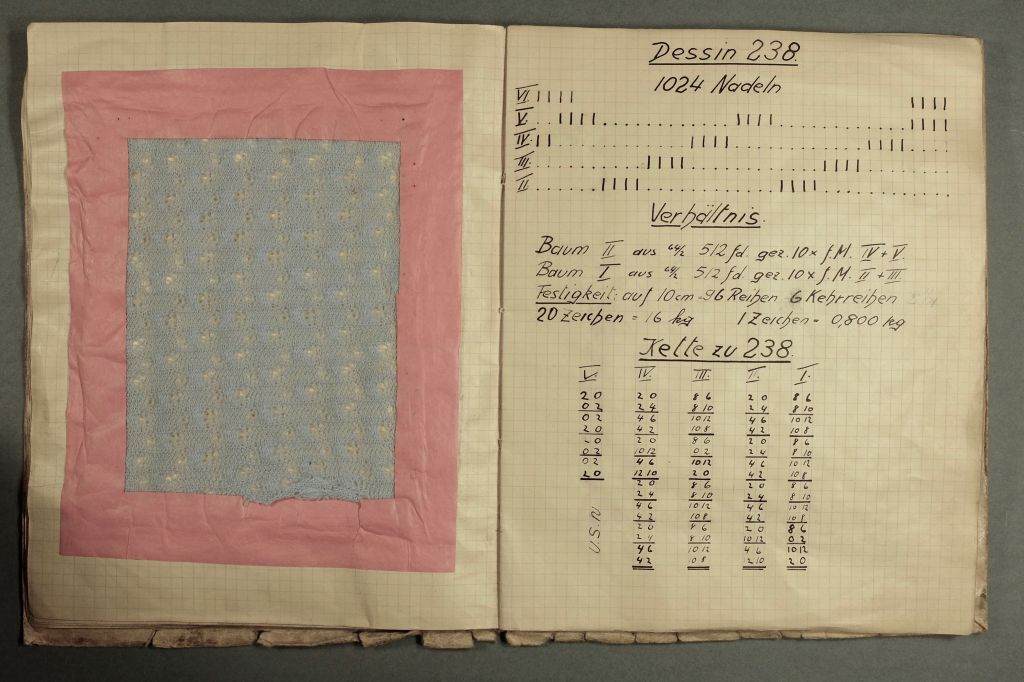 Dessin 238.
1024 Nadeln
VI.
V.
IV.
III.
II.
Verhältnis.
Baum II aus 64/2 512 fd. gez. 10x f. M. IV + V.
Baum I aus 64/2 512 fd. gez. 10x f. M. II + III
Festigkeit: auf 10cm = 96 Reihen 6 Kehrreihen
20 Zeichen = 16 kg 1 Zeichen = 0,800 kg
Kette zu 238.
V. IV. III. II. I.
20 20 86 20 86
02 24 810 24 810
02 46 1012 46 1012
20 42 108 42 108
20 20 86 20 86
02 1012 02 24 810
02 46 1012 46 1012
20 1210 20 42 108
20 86 20 86
24 810 24 810
46 1012 46 1012
42 108 42 108
20 86 20 86
24 810 1012 02
46 1012 46 1012
42 08 1210 20
U.S.W.